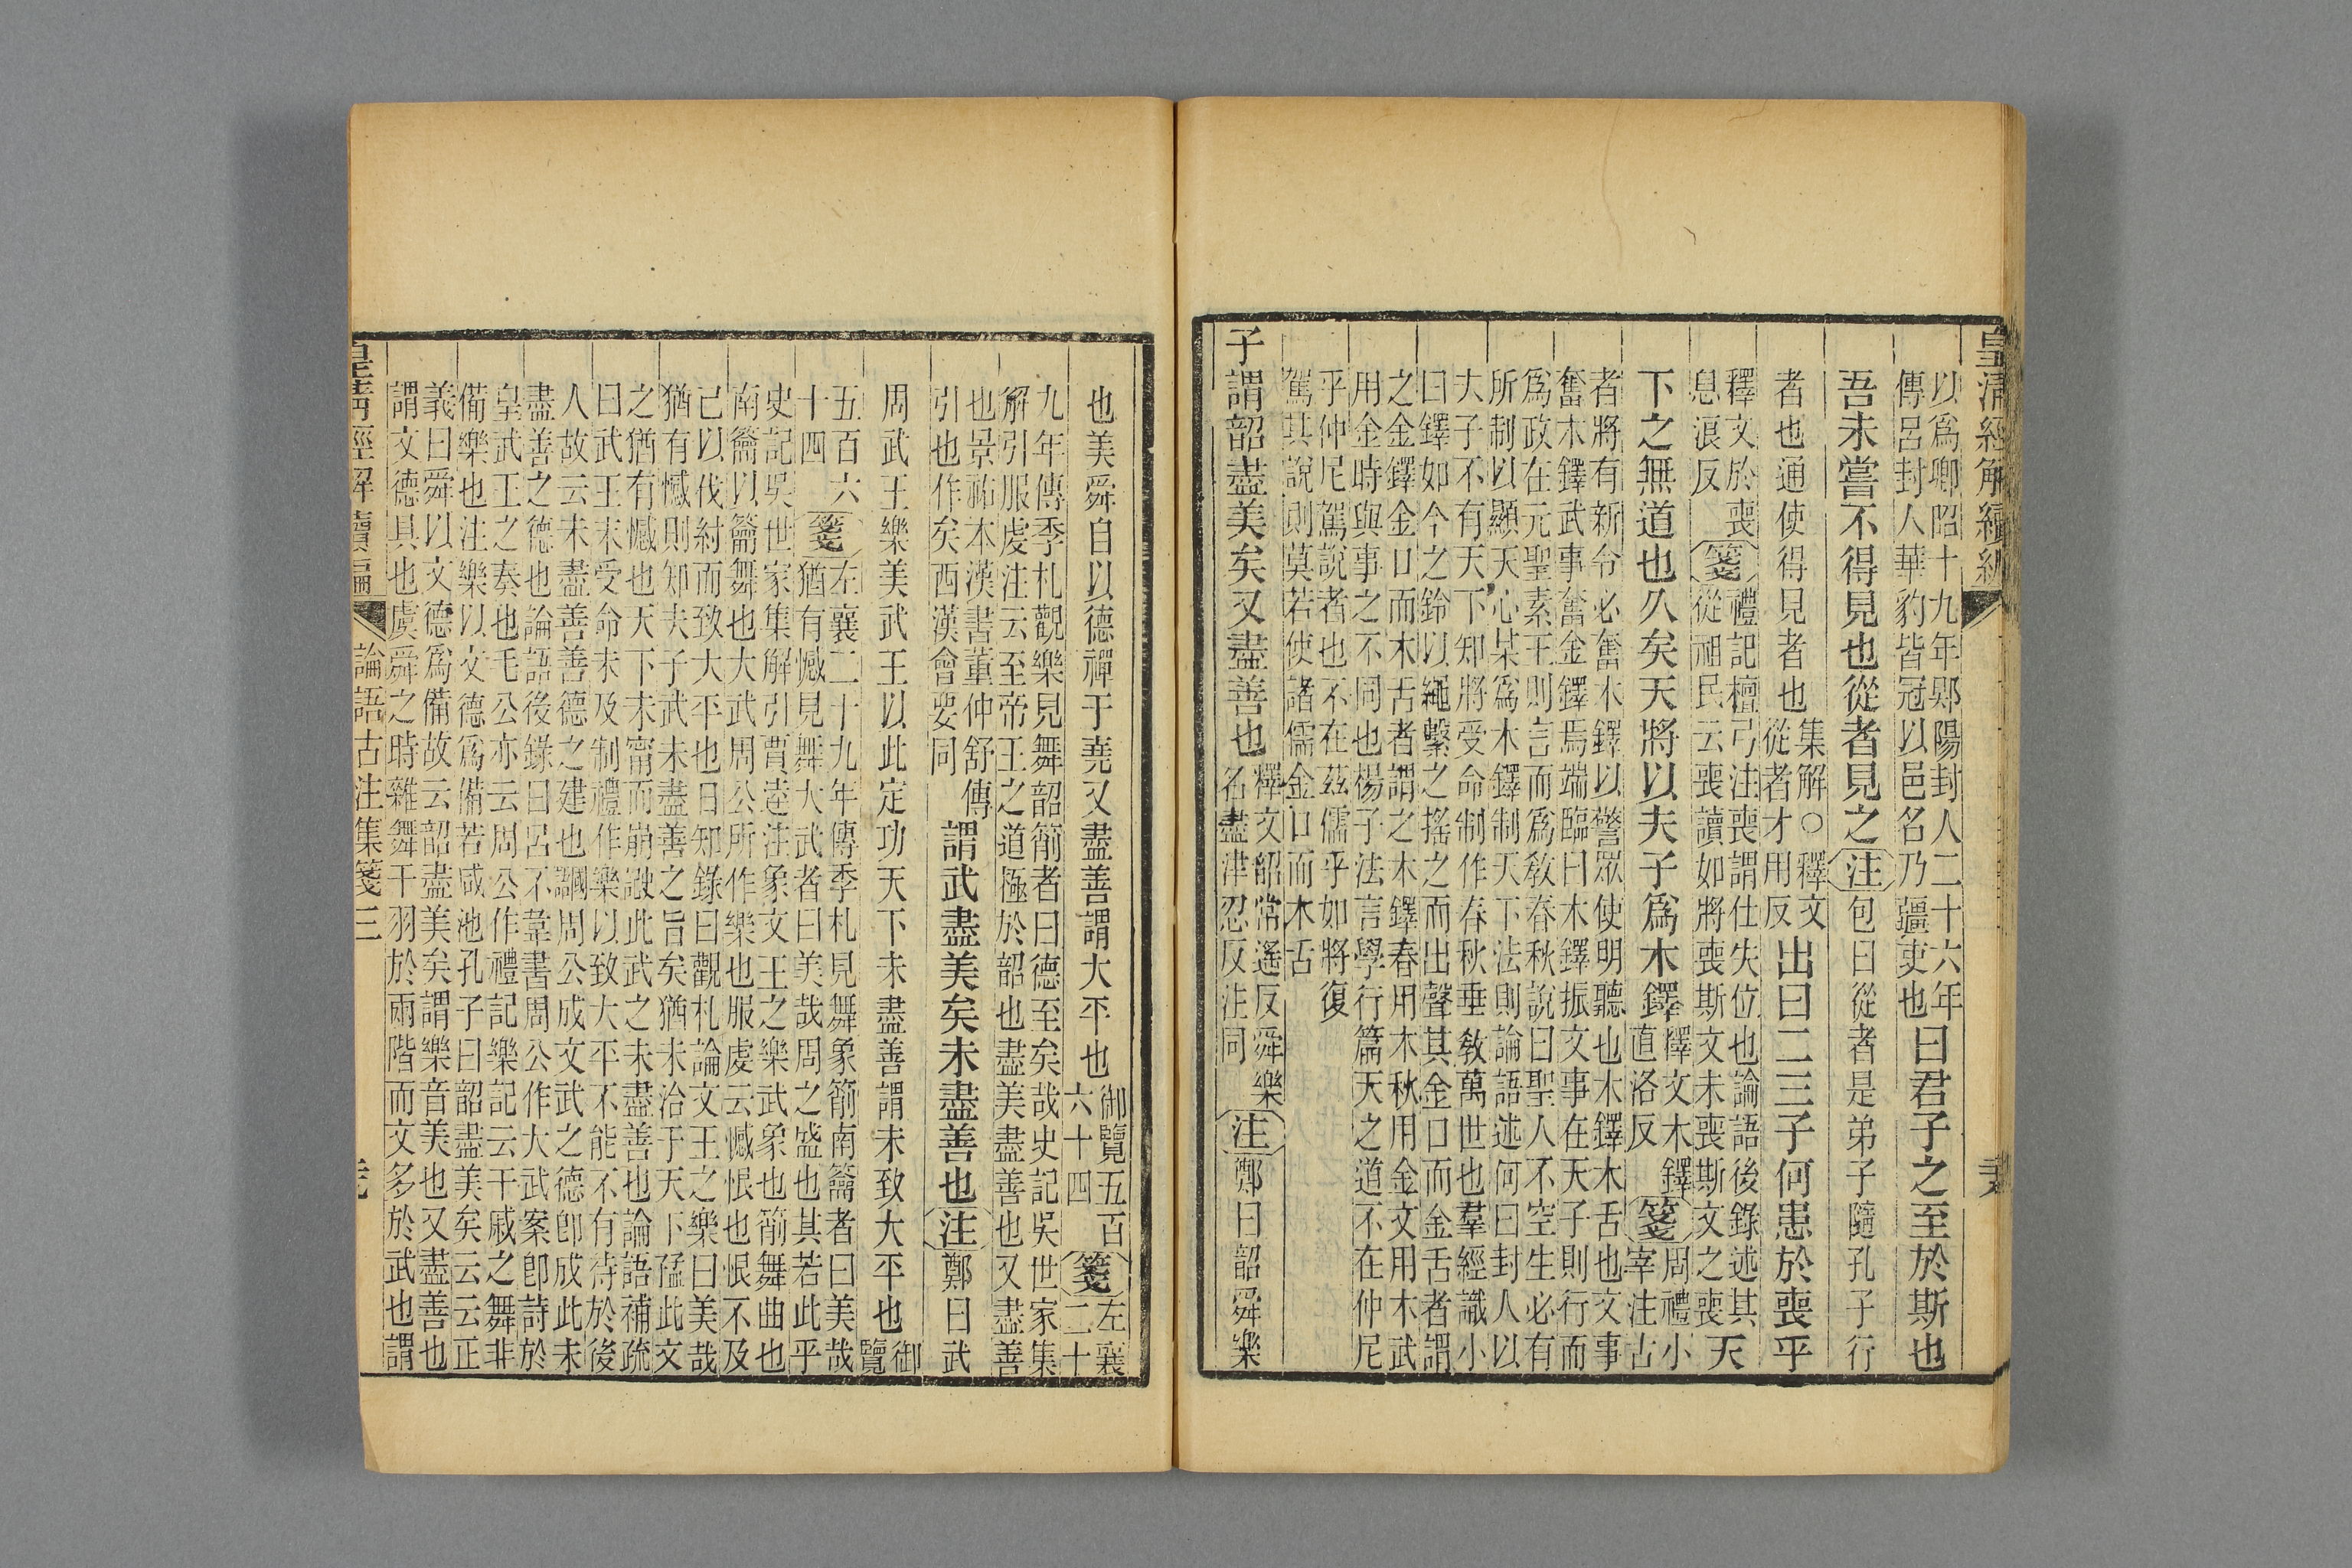 皇清經解續編
以爲卿昭十九年郹陽封人二十六年
傳呂封人華豹皆冠以邑名乃疆吏也
曰君子之至於斯也
吾未嘗不得見也從者見之注包曰從者是弟子隨孔子行
者也通使得見者也
集解○釋文
從者才用反
出曰二三子何患於喪乎
釋文於喪
息浪反
箋
禮記檀弓注喪謂仕失位也論語後錄述其
從祖民云喪讀如將喪斯文未喪斯文之喪
天
下之無道也久矣天將以夫子爲木鐸
釋文木鐸
直洛反
箋
周禮小
宰注古
者將有新令必奮木鐸以警眾使明聽也木鐸木舌也文事
奮木鐸武事奮金鐸焉端臨曰木鐸振文事在天子則行而
爲政在元聖素王則言而爲敎春秋說曰聖人不空生必有
所制以顯天心某爲木鐸制天下法則論語述何曰封人以
夫子不有天下知將受命制作春秋垂敎萬世也羣經識小
曰鐸如今之鈴以繩繫之搖之而出聲其金口而金舌者謂
之金鐸金口而木舌者謂之木鐸春用木秋用金文用木武
用金時與事之不同也楊子法言學行篇天之道不在仲尼
乎仲尼駕說者也不在茲儒乎如將復
駕其說則莫若使諸儒金口而木舌
子謂韶盡美矣又盡善也
釋文韶常遙反舜樂
名盡津忍反注同
注鄭曰韶舜樂
也美舜自以德禪于堯又盡善謂大平也
御覽五百
六十四
箋
左襄
二十
九年傳季札觀樂見舞韶箾者曰德至矣哉史記吳世家集
解引服虔注云至帝王之道極於韶也盡美盡善也又盡善
也景祐本漢書董仲舒傳
引也作矣西漢會要同
謂武盡美矣未盡善也注鄭曰武
周武王樂美武王以此定功天下未盡善謂未致大平也
御
覽
五百六
十四
箋
左襄二十九年傳季札見舞象箾南籥者曰美哉
猶有憾見舞大武者曰美哉周之盛也其若此乎
史記吳世家集解引賈逵注象文王之樂武象也箾舞曲也
南籥以籥舞也大武周公所作樂也服虔云憾恨也恨不及
己以伐紂而致大平也日知錄曰觀札論文王之樂曰美哉
猶有憾則知夫子武未盡善之旨矣猶未洽于天下此文
之猶有憾也天下未甯而崩此武之未盡善也論語補疏
曰武王末受命未及制禮作樂以致大平不能不有待於後
人故云未盡善善德之建也周公成文武之德卽成此未
盡善之德也論語後錄曰呂不韋書周公作大武案卽詩於
皇武王之奏也毛公亦云周公作禮記樂記云干戚之舞非
備樂也注樂以文德爲備若咸池孔子曰韶盡美矣云云正
義曰舜以文德爲備故云韶盡美矣謂樂音美也又盡善也
謂文德具也虞舜之時雜舞干羽於兩階而文多於武也謂
皇清經解續編
論語古注集箋三